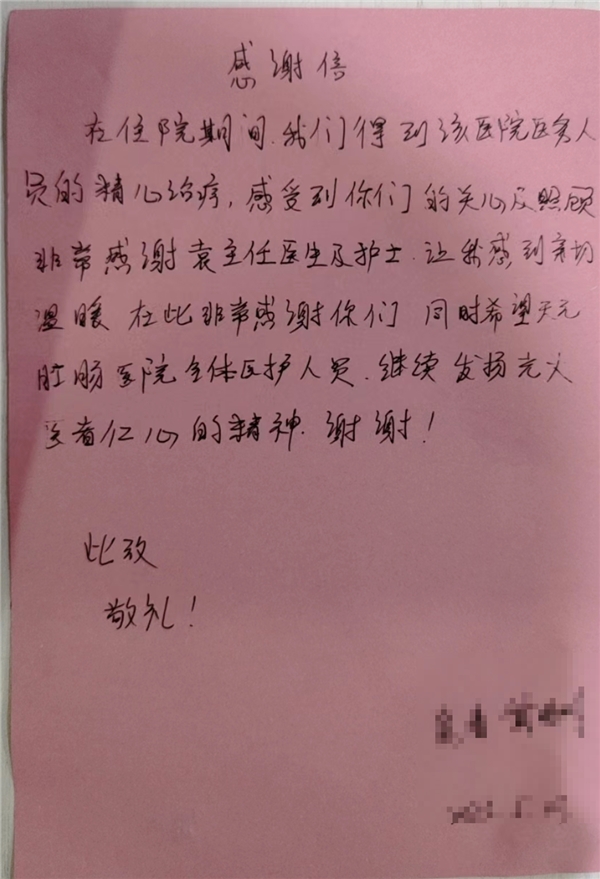 感谢信
在住院期间.我们得到该医院医务人
员的精心治疗,感受到你们的关心及照顾
非常感谢袁主任医生及护士.让我感到亲切
温暖 在此非常感谢你们 同时希望天元
肛肠医院全体医护人员.继续发扬光大
医者仁心的精神.谢谢!
此致
敬礼!